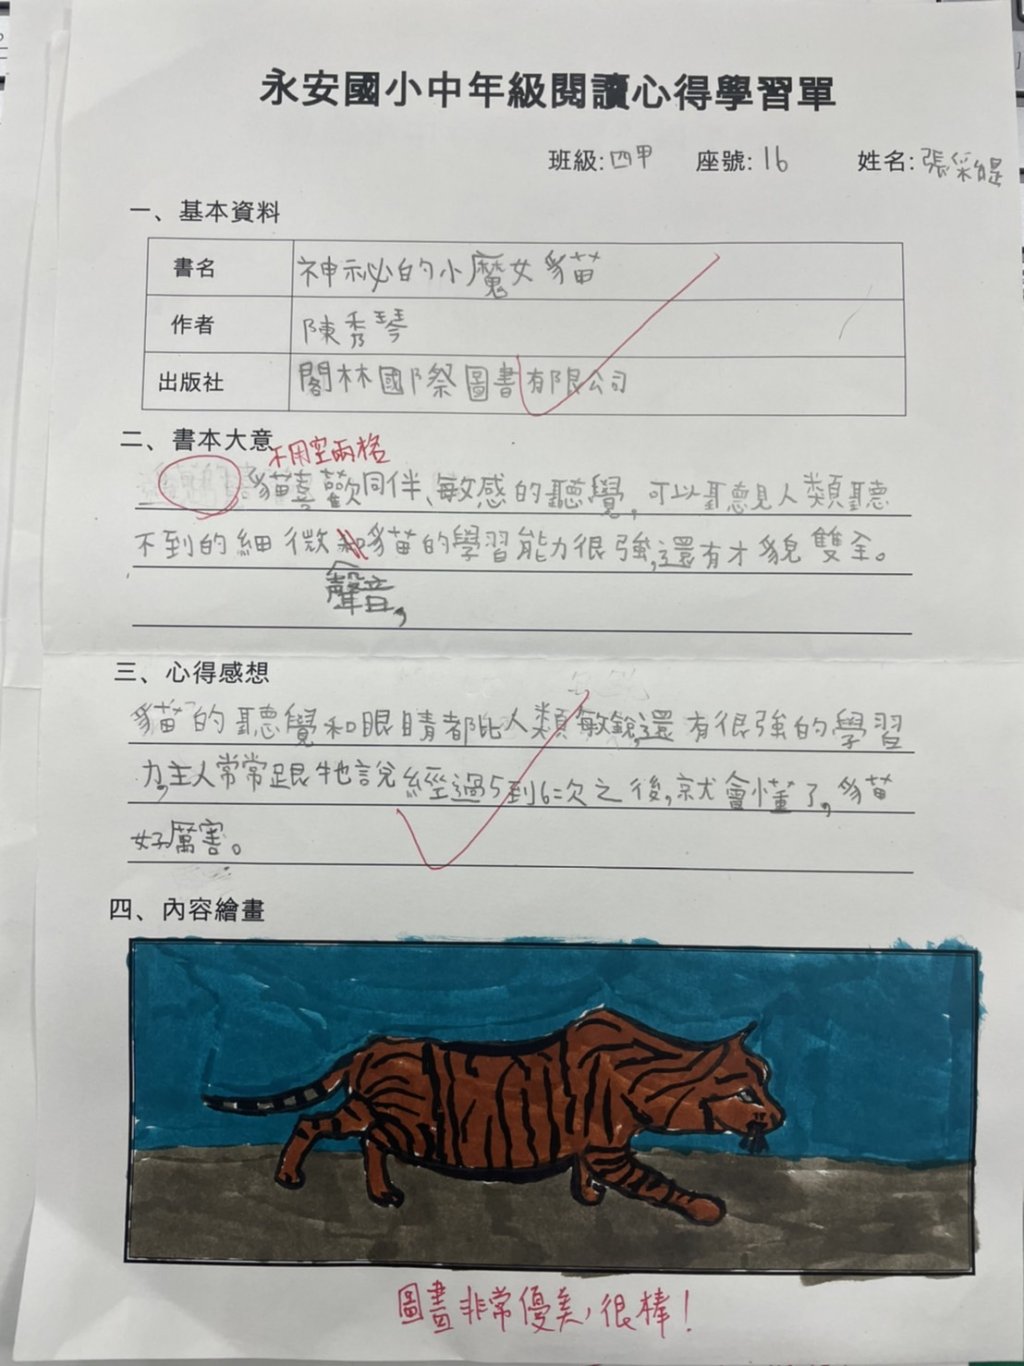 永安國小中年級閱讀心得學習單
班級:四甲 座號:16 姓名:張綵緹
一、基本資料
書名 神祕的小魔女貓
作者 陳秀琴
出版社 閣林國際圖書有限公司
二、書本大意
不用空兩格
貓喜歡同伴、敏感的聽覺,可以聽見人類聽
不到的細微 貓的學習能力很強,還有才貌雙全。
聲音,
三、心得感想
貓的聽覺和眼睛都比人類敏銳,還有很強的學習
力,主人常常跟牠說經過5到6次之後,就會懂了,貓
好厲害。
四、內容繪畫
圖畫非常優美,很棒!